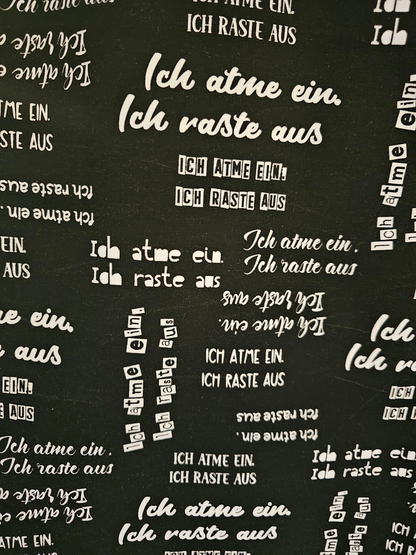 Ich raste aus
ATME EIN.
ICH RASTE AUS
Ich
Ich raste
Ich atme
Ich atme ein.
Ich raste aus
TME EIN.
STE AUS
ICH ATME EIN.
ICH RASTE AUS
Ich atme ein
Ich raste aus
ich atme ein.
EIN.
AUS
Ich atme ein.
Ich raste aus
Ich atme ein.
Ich raste aus
Ich atme ein.
Ich raste aus
e ein.
aus
Ich atme ein.
Ich raste aus
ICH ATME EIN.
ICH RASTE AUS
Ich
Ich r
EIN.
AUS
ICH
ICH R
ich atme ein.
ich raste aus
Ich atme ein.
Ich raste aus
ICH ATME EIN.
ICH RASTE AUS
Ich atme ein
Ich raste aus
Ich raste aus
Ich atme ein.
Ich raste aus
Ich atme ein.
Ich raste aus
ICH ATME EIN.